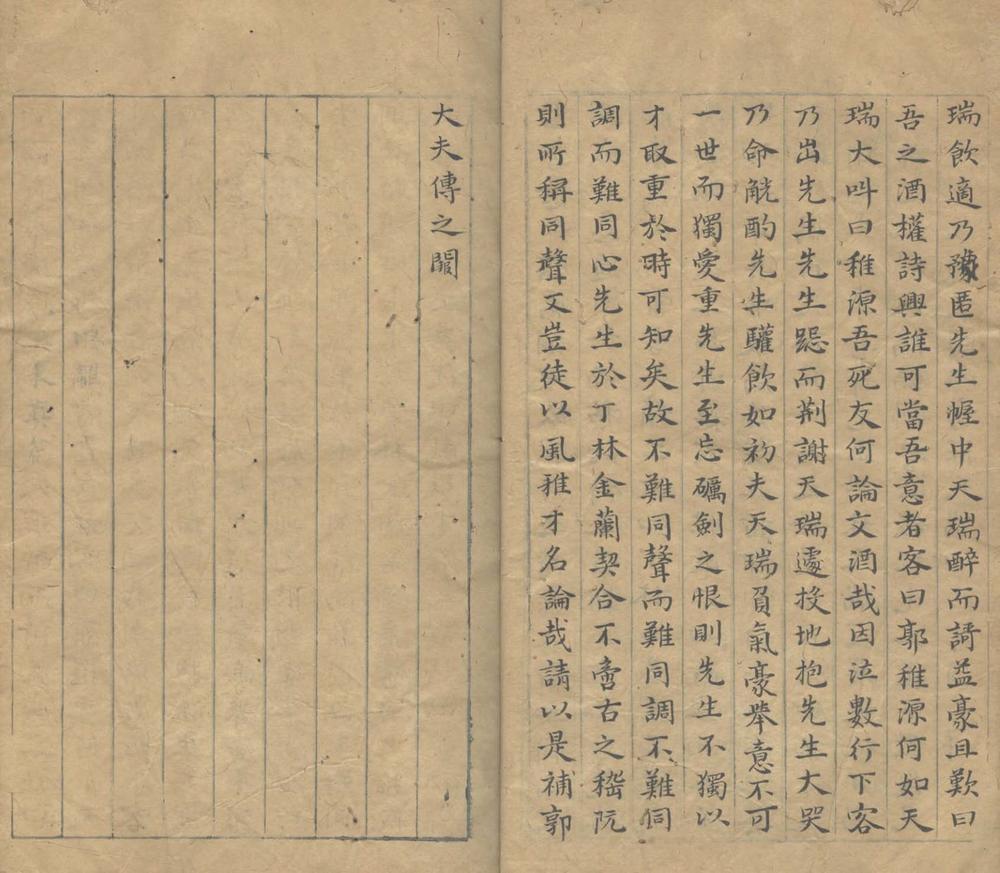 瑞飲適乃豫匿先生幄中天瑞醉而謌益豪且歎曰
吾之酒權詩興誰可當吾意者客曰郭稚源何如天
瑞大叫曰稚源吾死友何論文酒哉因泣數行下客
乃出先生先生跽而荆謝天瑞遽投地抱先生大哭
乃命觥酌先生驩飲如初夫天瑞負氣豪擧意不可
一世而獨愛重先生至忘礪劍之恨則先生不獨以
才取重於時可知矣故不難同聲而難同調不難同
調而難同心先生於丁林金蘭契合不啻古之嵇阮
則所稱同聲又豈徒以風雅才名論哉請以是補郭
大夫傳之闕